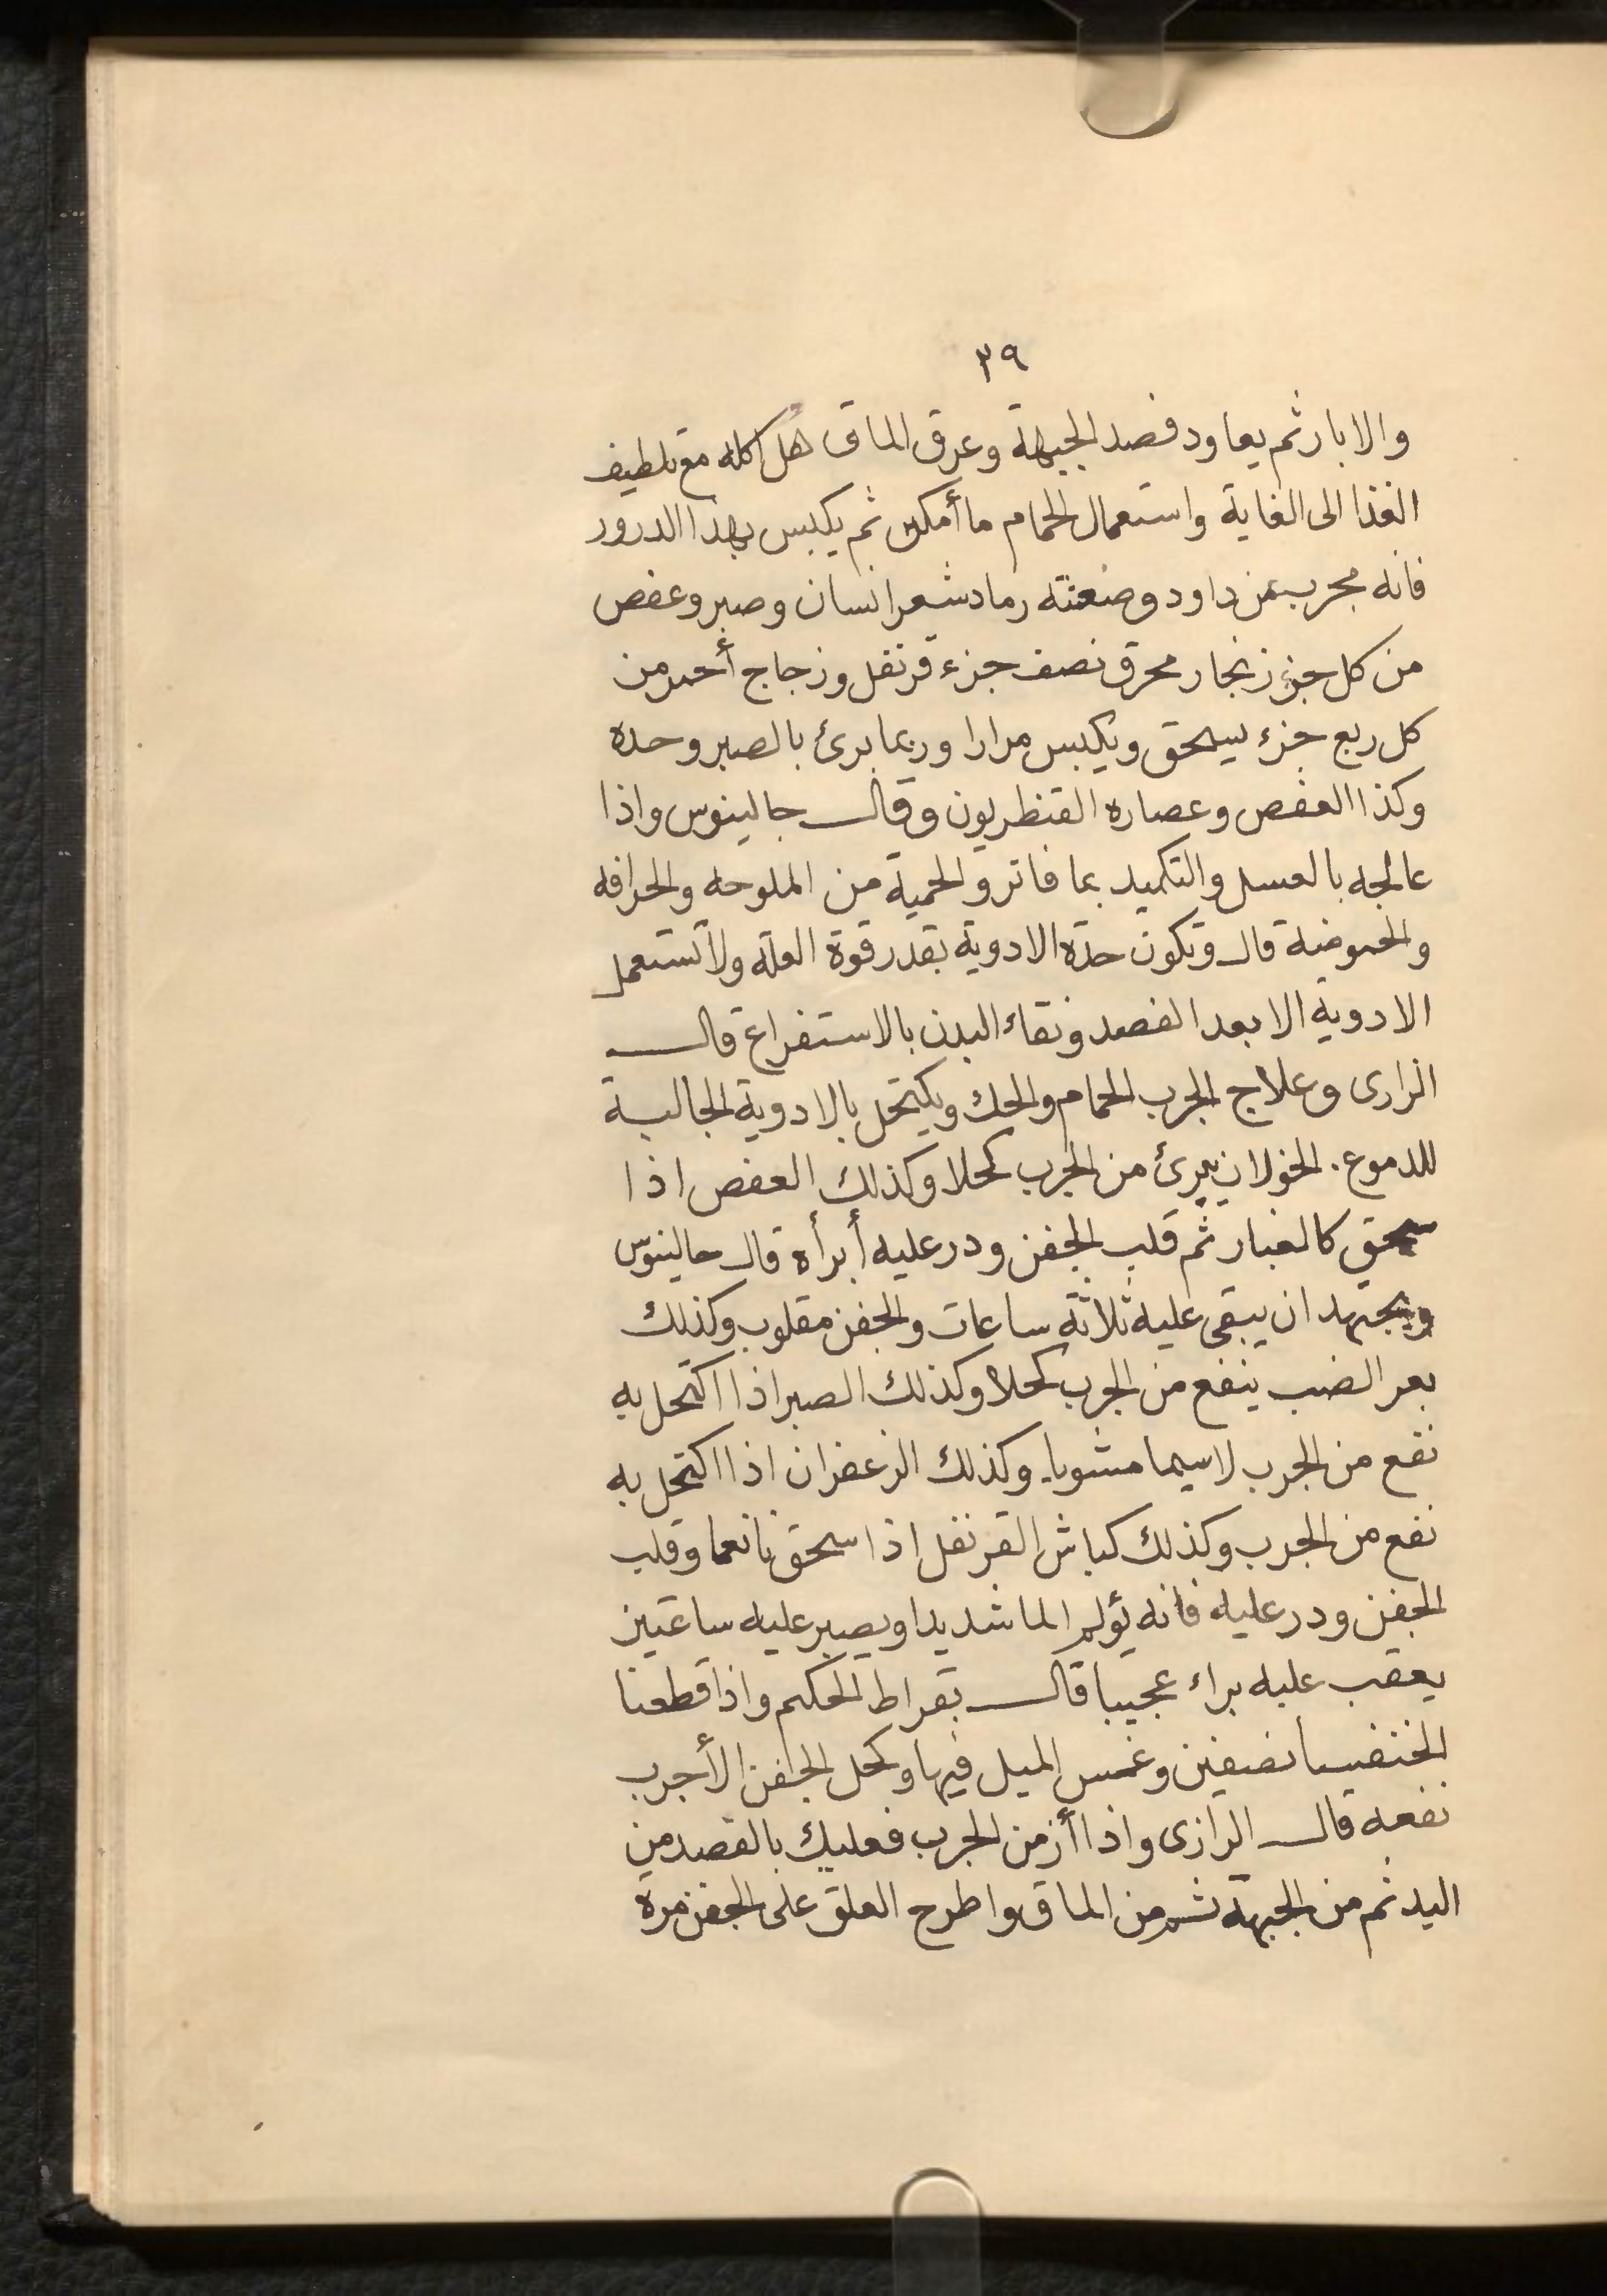 ٣٩
والابارثم يعاود فصد الجبهة وعرق الماق كله مع تلطيف
الغذا الى الغاية واستعمال الحمام ما أمكن ثم يكبس بهذا الدرور
فانه مجرب عن داود وصنعته رماد شعر انسان وصبر وعفص
من كل جزء زنجار محرق نصف جزء قرنفل وزجاج أحمر من
كل ربع جزء يسحق ويكبس مرارا وربما برئ بالصبر وحده
وكذا العفص وعصاره القنظريون وقال جالينوس واذا
عالجه بالعسل والتكميد بما فاتر والحمية من الملوحه والحرافه
والحموضة قال وتكون حدة الادوية بقدر قوة العلة ولا تستعمل
الادوية الا بعد الفصد ونقاء البدن بالاستفراغ قال
الرازى وعلاج الجرب الحمام والحك ويكتحل بالادوية الجالبة
للدموع. الخولان يبرئ من الجرب كحلا وكذلك العفص اذا
سحق كالغبار ثم قلب الجفن ودر عليه أبرأه قال جالينوس
ويجتهد ان يبقى عليه ثلاثة ساعات والجفن مقلوب وكذلك
بعر الضب ينفع من الجرب كحلا وكذلك الصبر اذا اكتحل به
نفع من الجرب لاسيما مشويا. وكذلك الزعفران اذا اكتحل به
نفع من الجرب وكذلك كباش القرنفل اذا سحق ناعما وقلب
الجفن ودر عليه فانه يؤلم الما شديدا ويصبر عليه ساعتين
يعقب عليه براء عجيبا قال بقراط الحكيم واذا قطعنا
الخنفيسا نصفين وغمس الميل فيها وكحل الجفن الأجرب
نفعه قال الرازى واذا أزمن الجرب فعليك بالفصد من
اليد ثم من الجبهة ثم من الماق واطرح العلق على الجفن مرة